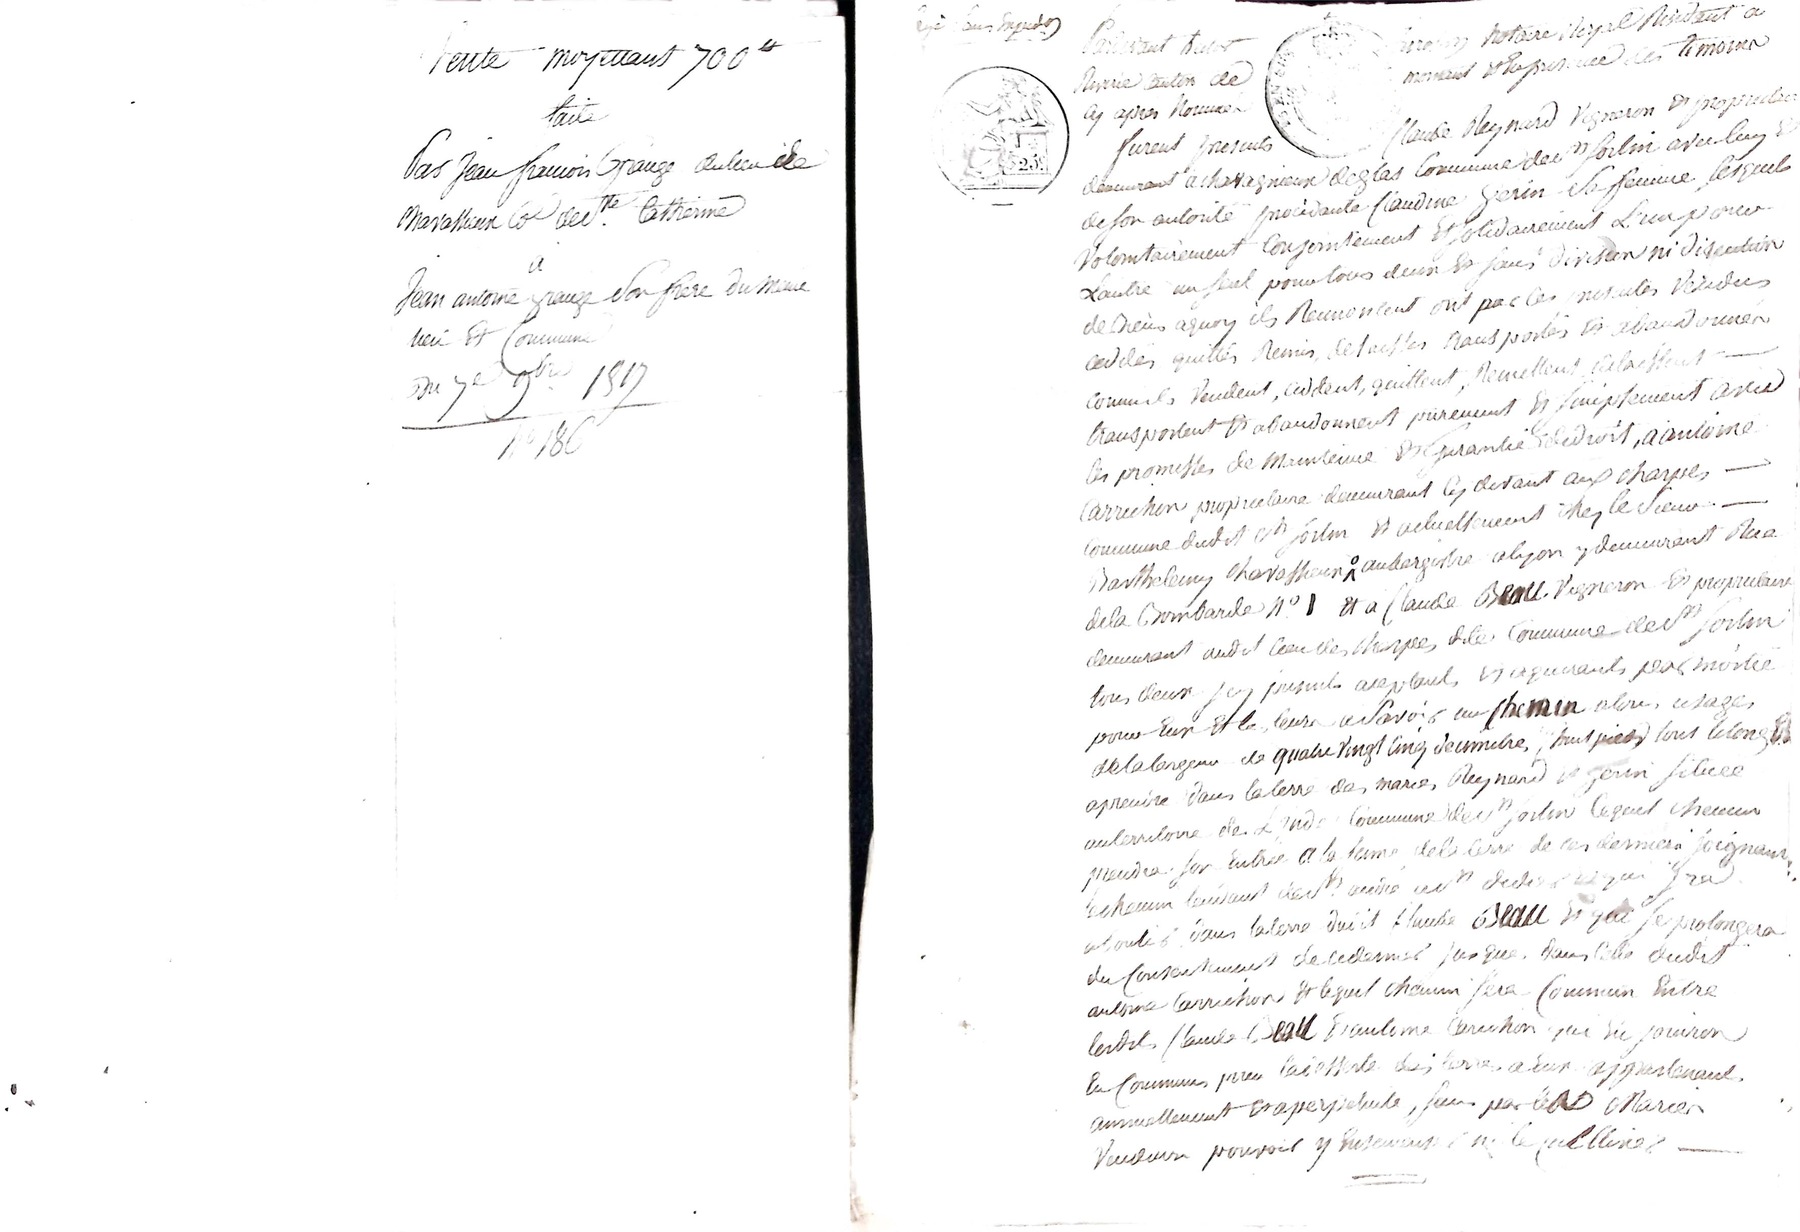 Vente moyenant 700 lt
faite
Par Jean françois Grange du lieu de
Chavassieux Cne de Ste Catherine
à
Jean antoine grange Son frere du même
lieu Et Commune
Du 7e 9bre 1817
No 186
Pardevant
notaire Royal Résidant a
Rivrie canton de
mornant Et En présence des témoins
Cy après Nommés
furent presents
Claude Reynard Vigneron Et proprietaire
demeurant a Commune de St Sorlin avec luy Et
de son autorité procédante Claudine gerin Sa femme lesquels
Volontairement Conjointement Et Solidairement L'un pour
L'autre un seul pour tous deux Et sans division ni discution
de biens aquoy ils Renoncent ont par ces presentes Vendus
ceddés quittés Remis, delaissés transportés Et abandonnés
comme ils Vendent, ceddent, quittent, Remettent, delaissent
transportent Et abandonnent purement Et Simplement avec
les promesses de Maintenue Et garantie de droit, a antoine
Carrichon proprietaire demeurant Cy devant aux Charpes
Commune dudit St Sorlin Et actuellement chez le Sieur
Barthelemy Chavassieux aubergiste a lyon y demeurant Rue
de la Bombarde No 1 Et a Claude Beau Vigneron Et proprietaire
demeurant audit lieu des Charpes dite Commune de St Sorlin
tous deux icy presents aceptants Et aquerants par moitié
pour Eux Et les leurs a Savoir un chemin
de la largeur de quatre vingt cinq decimetres, huit pieds tout le long Et
aprendre dans la terre des maries Reynard Et gerin Située
au territoire de Commune de St Sorlin lequel chemin
prendra son Entrée a la de la terre de ces derniers joignant
le chemin tendant de St andré a St didier Et qui Ira
aboutir dans la terre dudit Claude Beau Et qui se prolongera
du Consentement de ce dernier jusques dans celle dudit
antoine Carrichon Et lequel chemin sera Commun Entre
lesdits Claude Beau Et antoine Carrichon qui En jouiront
En Commun pour la desserte des terres a Eux appartenant
annuellement Et a perpetuité, sans par lesd Maries
Vendeurs pouvoir y